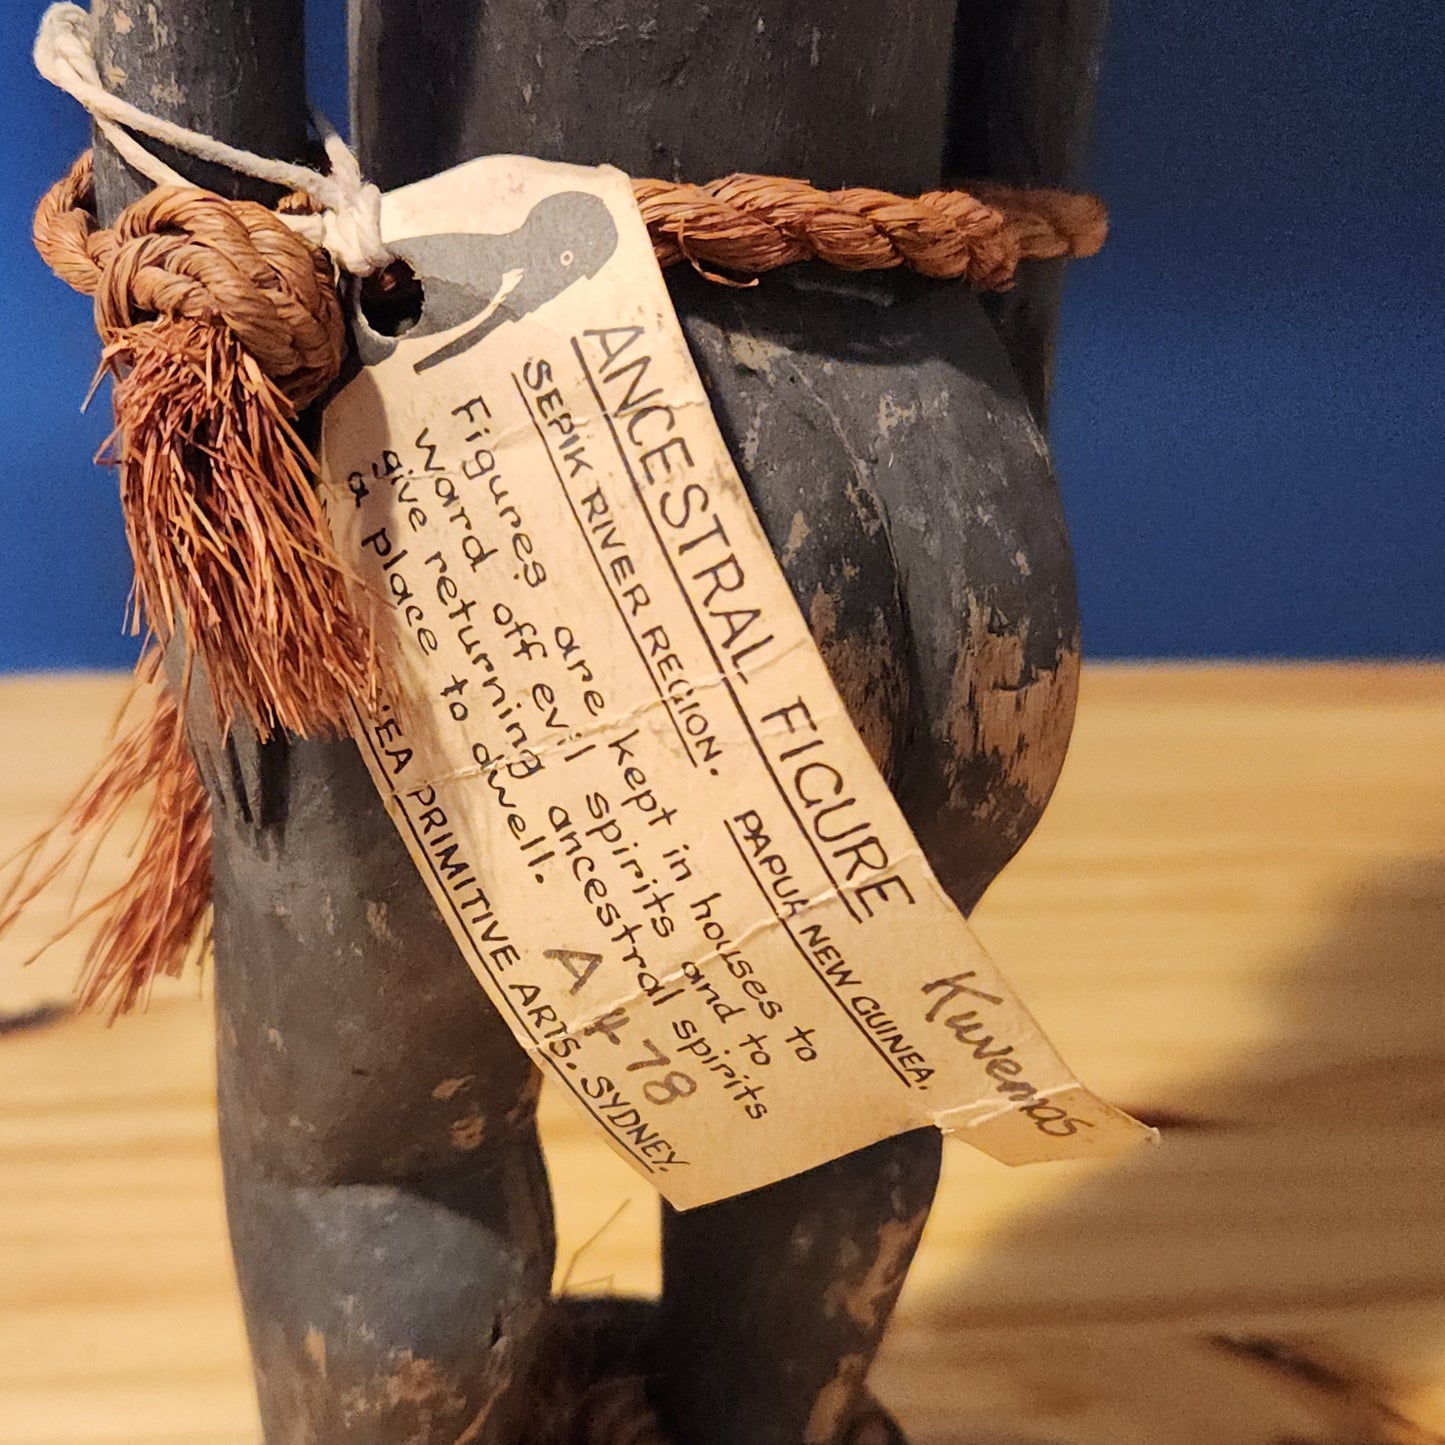 ANCESTRAL FIGURE Kuvemas
SEPIK RIVER REGION. PAPUA NEW GUINEA.
Figures are kept in houses to
ward off evil spirits and to
give returning ancestral spirits
a place to dwell. A 478
PRIMITIVE ARTS. SYDNEY.